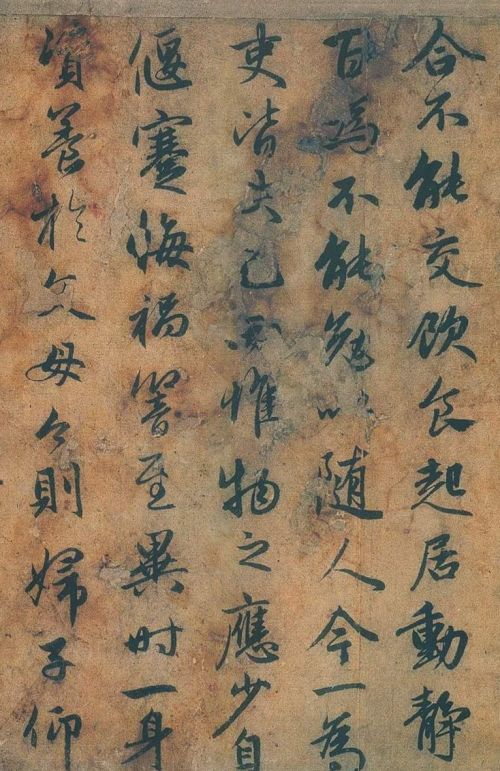 合不能交飲食起居動静
百為不能勉以随人今一為
吏皆失己而惟物之應少自
偃蹇悔禍響至異時一身
資養於父母今則婦子仰